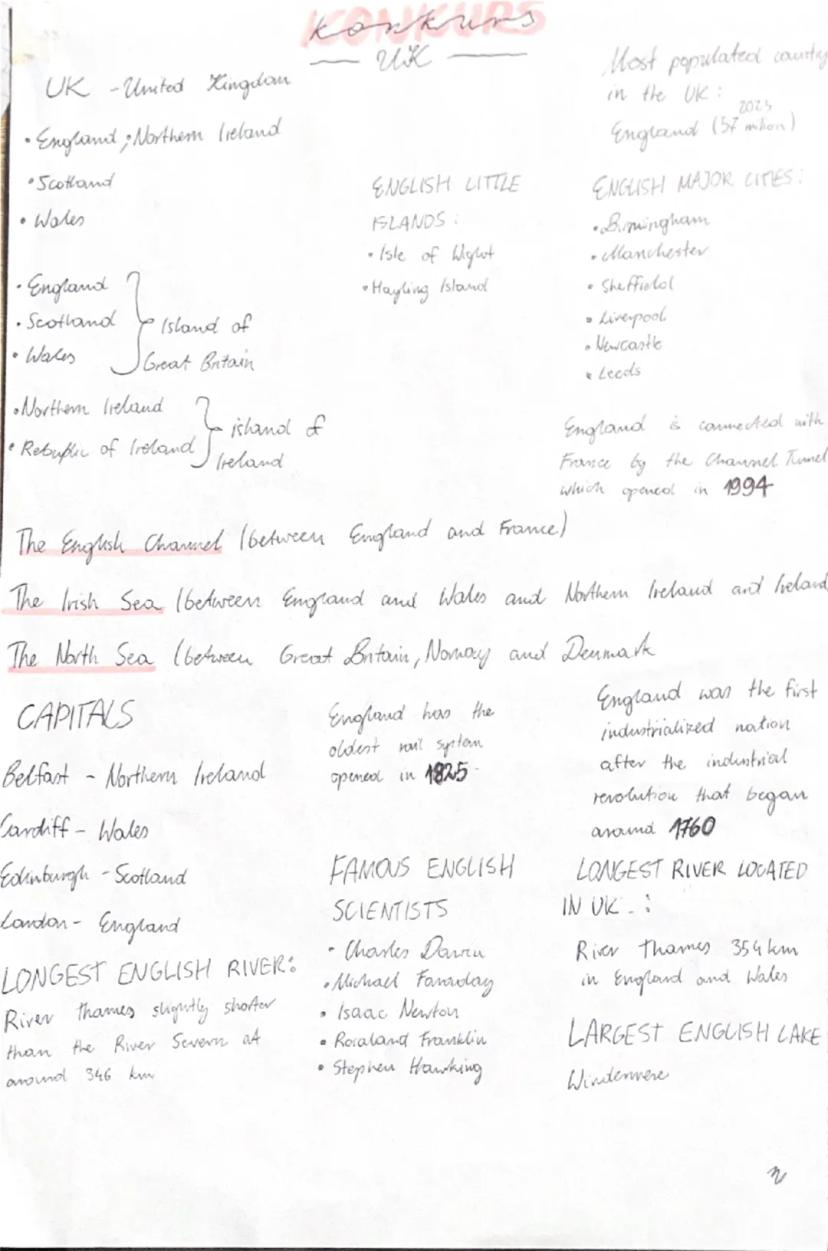 KONKURS
Konkurs
— UK —
UK - United Kingdom
• England ; • Northern Ireland
• Scotland
• Wales
• England
• Scotland
• Wales
Island of
Great Britain
• Northern Ireland
• Rebuplic of Ireland
island of
Ireland
ENGLISH LITTLE
ISLANDS :
• Isle of Wight
• Hayling Island
Most populated country
in the UK :
2023
England (57 milion)
ENGLISH MAJOR CITIES :
• Birmingham
• Manchester
• Sheffield
• Liverpool
• Newcastle
• Leeds
England is connected with
France by the Channel Tunnel
which opened in 1994
The English Channel (between England and France)
The Irish Sea (between England and Wales and Northern Ireland and Ireland
The North Sea (between Great Britain, Norway and Denmark
CAPITALS
Belfast - Northern Ireland
Cardiff - Wales
Edinburgh - Scotland
London - England
LONGEST ENGLISH RIVER:
River thames slightly shorter
than the River Severn at
around 346 km
England has the
oldest rail system
opened in 1825
FAMOUS ENGLISH
SCIENTISTS
• Charles Darwin
• Michael Faraday
• Isaac Newton
• Rosaland Franklin
• Stephen Hawking
England was the first
industrialized nation
after the industrial
revolution that began
around 1760
LONGEST RIVER LOCATED
IN UK :
River thames 354 km
in England and Wales
LARGEST ENGLISH LAKE
Windermere